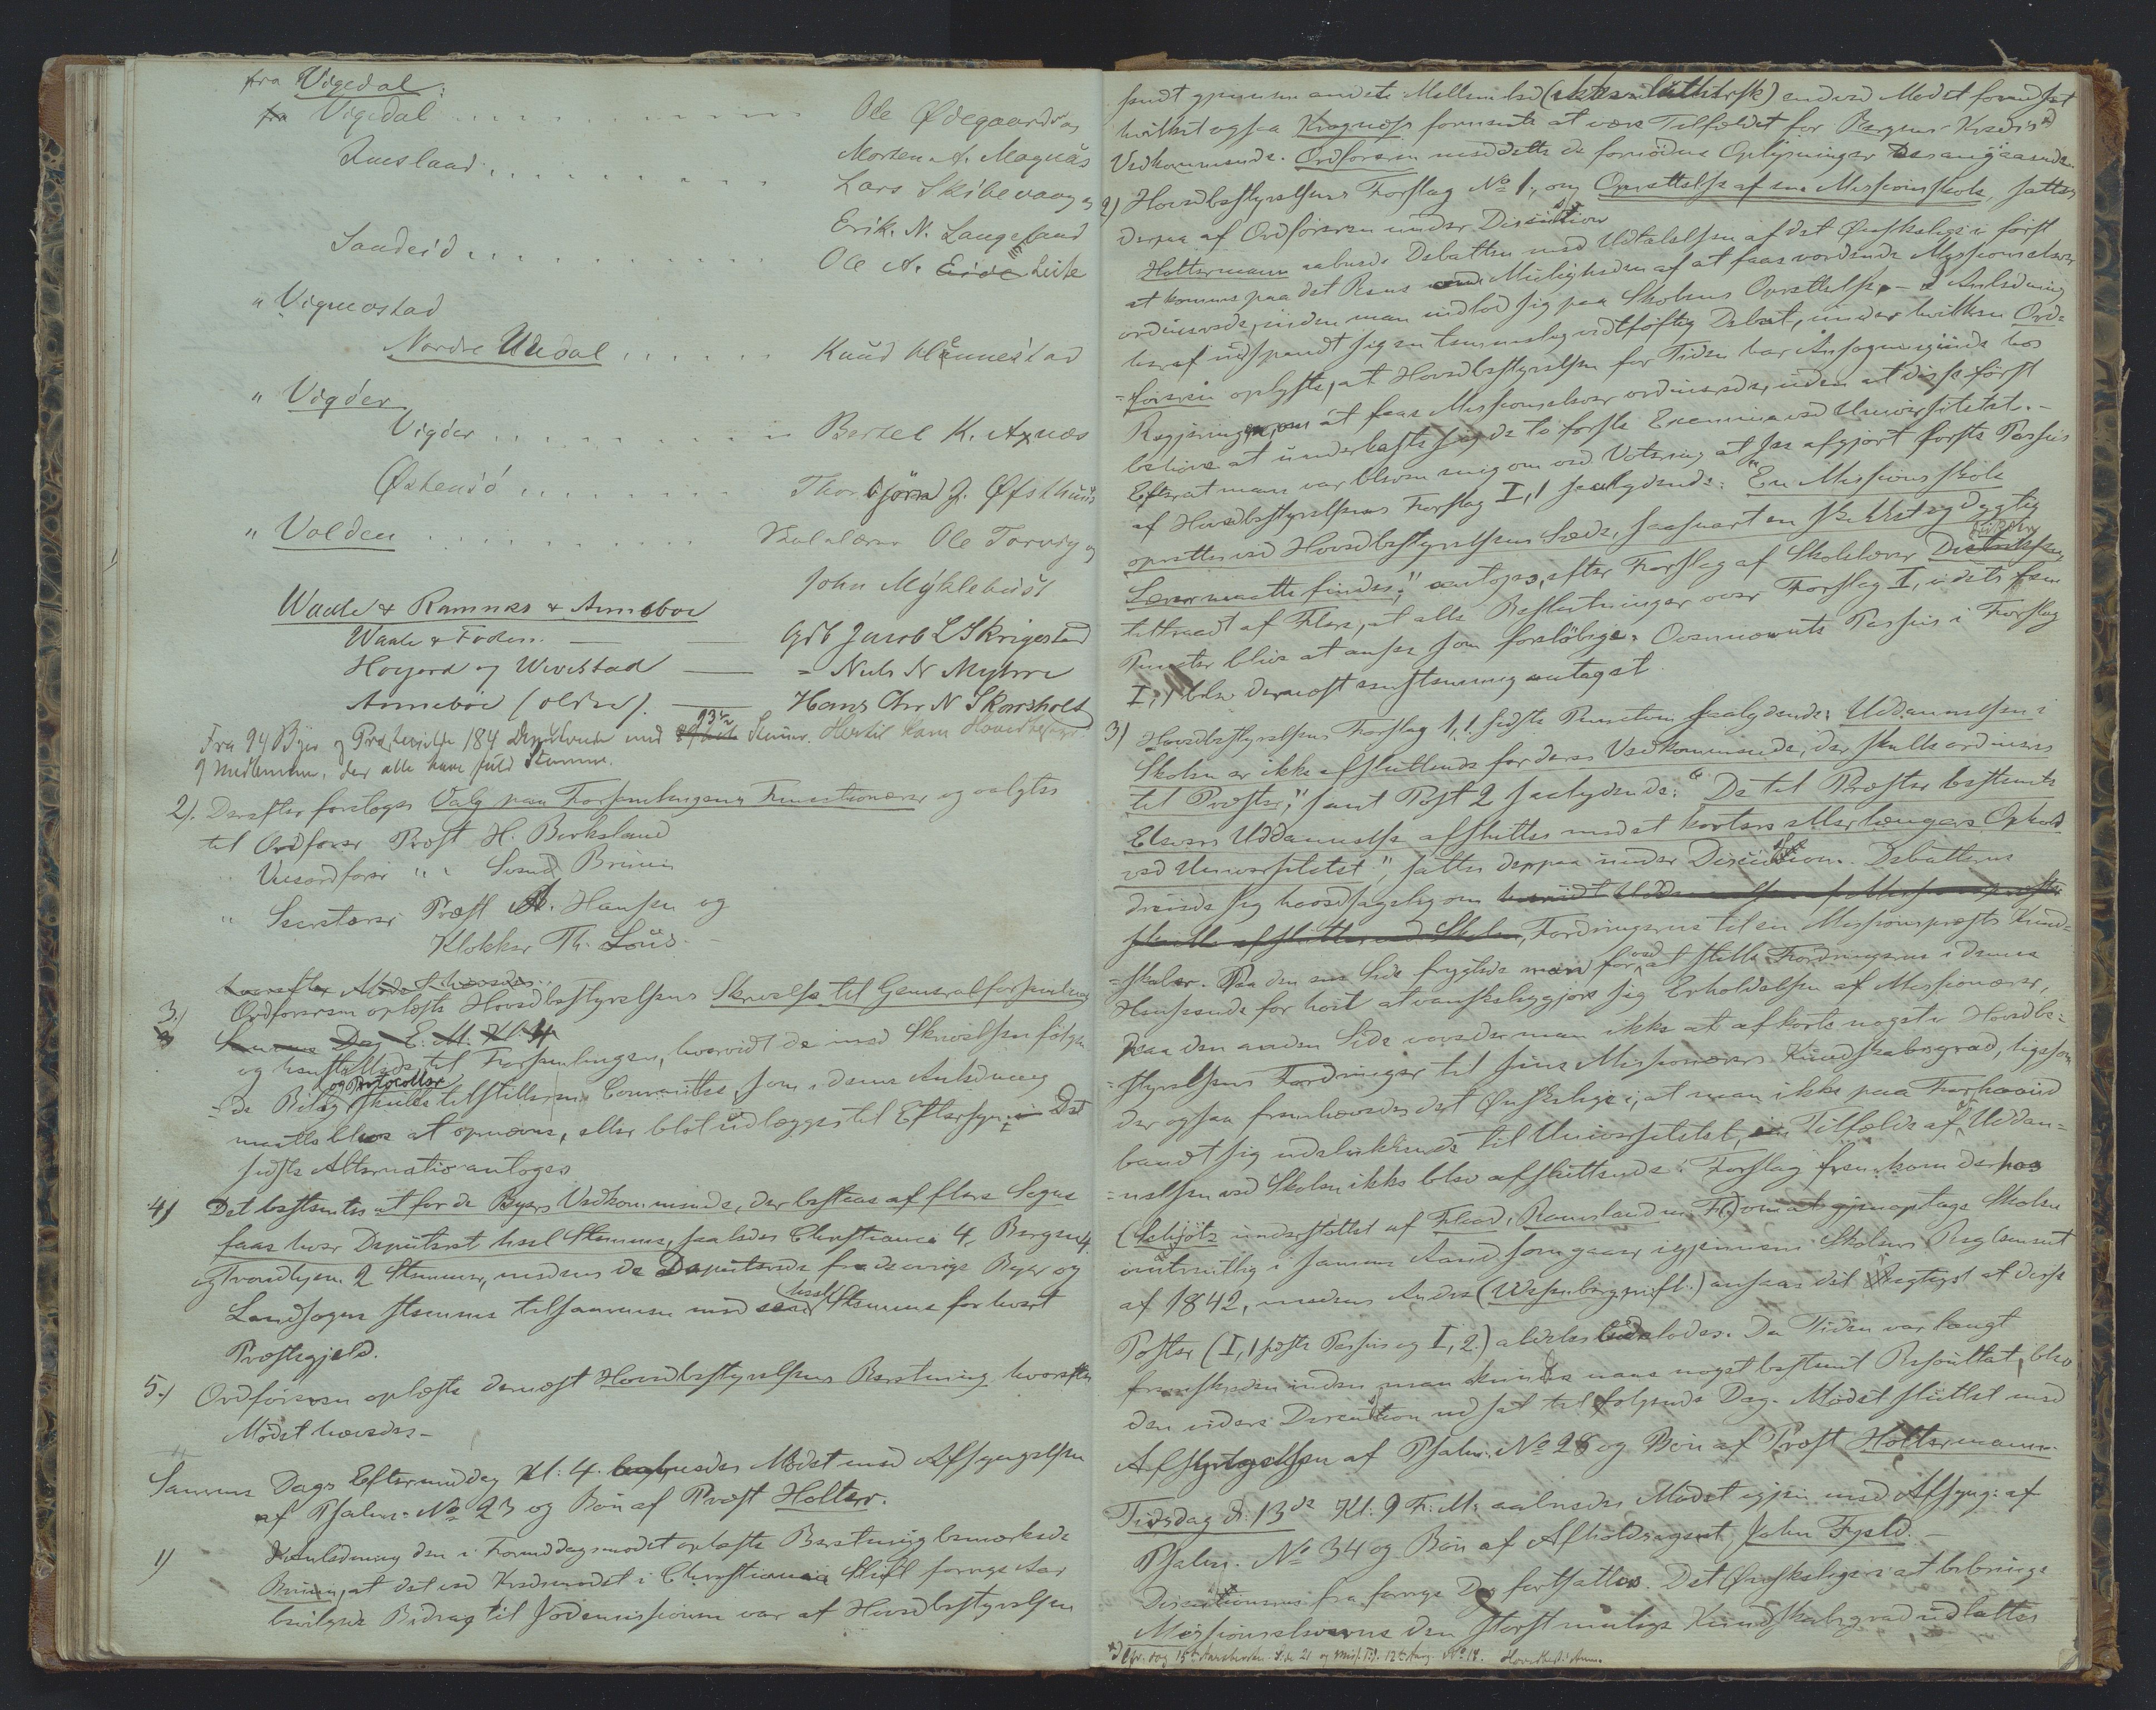 fra Vigedal:
fra Vigedal . . . . . . . . . Ole Ødegaard og
Morten A. Magnås
Imsland . . . . . . . . . Lars Skibevaag og
Erik N. Langeland
Sandeid . . . . . . . . . Ole A. Eide Leite
" Vigmostad
Nordre Undal . . . . . Knud Mannestad
" Vigöer
Vigöer . . . . . . . . . Bertel K. Axnæs
Østensö . . . . . . . . Thorbjörn J. Øfsthuus
" Volden . . . . . . . . . Skolelærer Ole Torvig og
John Myklebust
Waale & Ramnæs & Arneboe
Waale & Foden — Gdb Jacob L Skrigestad
Høyord og Wivestad — = Niels N Myhrre
Arnebøe (Olsen). — Hans Chr N Skorsholt
Fra 94 Byer og Præstegjelde 184 Deputerede med 93½ Stemmer. Hertil kom Hovedbestyr.
9 Medlemmer, der alle have fuld Stemme.
2). Derefter foretoges Valg paa Forsamlingens Functionærer og valgtes
til Ordfører Provst H. Birkeland
Viceordfører " " Svend Bruun
" Secretærer Præst A. Hansen og
Klokker Th. Lous.
3) Ordføreren oplæste Hovedbestyrelsens Skrivelse til Generalforsamling
Samme Dag E. M. Kl. 4
og henstillede til Forsamlingen, hvorvidt de med Skrivelsen følgen
de Bilag og Protocoller skulle tilstilles en Committee, som i denne Anledning
maatte blive at opnævne, eller blot udlægges til Eftersyn. Det
sidste Alternativ antoges
4) Det bestemtes at for de Byers Vedkommende, der bestaae af flere Sogne
faar hver Deputeret heel Stemme, saaledes Christiania 4, Bergen 4.
og Trondhjem 2 Stemmer, medens de Deputerede fra de øvrige Byer og
Landsogne stemmes tilsammen med heel Stemme for hvert
Præstegjeld.
5.) Ordføreren oplæste dernæst Hovedbestyrelsens Beretning hvorefter
Mödet hævedes —
Samme Dags Eftermiddag Kl: 4. aabnedes Mødet med Afsyngelsen
af Psalme No 23 og Bön af Præst Holter.
1) I Anledning den i Formiddagsmødet oplæste Beretning bemærkede
Bruun, at det ved Kredsmødet i Christiania Stift forrige Aar
bevilgede Bidrag til Jödemissionen var af Hovedbestyrelsen
sendt gjennem andet Mellemled end ved Mødet forudsat
hvilket ogsaa Kragnæs formente at være Tilfældet for Bergens Kredses
Vedkommende. Ordføreren meddelte de fornödne Oplysninger desangaaende.
2) Hovedbestyrelsens Forslag No 1, om Oprettelse af en Missionsskole, sattes
derpaa af Ordføreren under Discussion
Holtermann aabnede Debatten med Udtalelsen af det Ønskelige i först
at komme paa det Rene med Muligheden af at faae vordende Missionselever
ordinerede, inden man indlod sig paa Skolens Oprettelse, — i Anledning
heraf udspandt sig en temmelig vidtløftig Debat, under hvilken Ord=
=føreren oplyste, at Hovedbestyrelsen for Tiden har Ansøgning inde hos
Regjeringen, om at faae Missionselever ordinerede, uden at disse först
behöve at underkaste sig de to første Examina ved Universitetet. —
Efterat man var bleven enig om ved Votering at see afgjort første Passus
af Hovedbestyrelsens Forslag I, 1 saalydende: "En Missionsskole
oprettes ved Hovedbestyrelsens Sæde, saasnart en skikket og dygtig
Lærer maatte findes," antoges, efter Forslag af Skolelærer
tiltraadt af Flere, at alle Beslutninger over Forslag I, i dets fem
Puncter blive at ansee som foreløbige. Ovennævnte Passus i Forslag
I, 1 blev dernæst eenstemmig antaget
3) Hovedbestyrelsens Forslag 1, 1. sidste Punctum saalydende: Uddannelsen i
Skolen er ikke afsluttende for deres Vedkommende, der skulle ordineres
til Præster," samt Post 2 saalydende: "De til Præster bestemte
Elevers Uddannelse afsluttes med et kortere eller længere Ophold
ved Universitetet", sattes derpaa under Discussion. Debatterne
dreiede sig hovedsagelig om
Fordringerne til en Missionspræsts Kund=
=skaber. Paa den ene Side frygtede man for ved at stille Fordringerne i denne
Henseende for höit at vanskeliggjøre sig Erholdelsen af Missionærer,
paa den anden Side vovede man ikke at afkorte noget i Hovedbe=
=styrelsens Fordringer til sine Missionærers Kundskabsgrad, ligesom
der ogsaa fremhævedes det Ønskelige i, at man ikke paa Forhaand
bandt sig udelukkende til Universitetet, i Tilfælde af at Uddan=
=nelsen ved Skolen ikke blev afsluttende. Forslag fremkom derhos
(Schjötz understöttet af Flood, Ramsland m. Fl.) om at gjenoptage Skolen
uforandret i samme Aand som gaaer igjennem Skolens Reglement
af 1842, medens Andre ansaae det rigtigst at disse
Poster (I, 1 sidste Passus og I, 2.) aldeles udelodes. Da Tiden var langt
fremskreden inden man kunde naae noget bestemt Resultat, blev
den videre Discussion udsat til følgende Dag. Mødet sluttet med
Afsyngelsen af Psalme No 28 og Bön af Præst Holtermann.
Tirsdag d: 13de Kl: 9 F: M: aabnedes Mødet igjen med Afsyng: af
Psalm. No 34 og Bön af Afholdsagent John Fjeld. —
Discussionen fra forrige Dag fortsattes. Det Ønskelige i at bibringe
Missionseleverne den størst mulige Kundskabsgrad udtaltes
*) Cfr. dog 15de Aarsberetn. Side 21 og Miss. Tid. 12te Aarg. No 14.